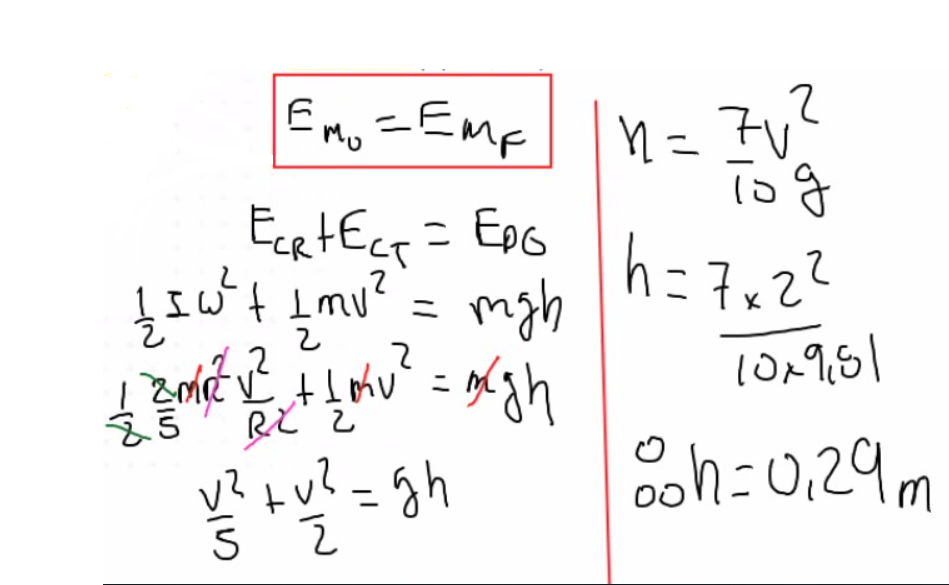 E_{M_0} = E_{M_F}
E_{CR} + E_{CT} = E_{PG}
\frac{1}{2} I ω^2 + \frac{1}{2} mv^2 = mgh
\frac{1}{2} \frac{2}{5} mR^2 \frac{v^2}{R^2} + \frac{1}{2} mv^2 = mgh
\frac{v^2}{5} + \frac{v^2}{2} = gh
h = \frac{7v^2}{10g}
h = \frac{7 × 2^2}{10 × 9,81}
∴ h = 0,29 m